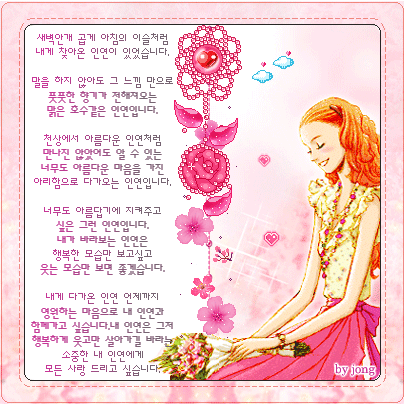 새벽안개 곱게 아침의 이슬처럼
내게 찾아온 인연이 있었습니다.
말을 하지 않아도 그 느낌 만으로
풋풋한 향기가 전해져오는
맑은 호수같은 인연입니다.
천상에서 아름다운 인연처럼
만나진 않았어도 알 수 있는
너무도 아름다운 마음을 가진
아리함으로 다가오는 인연입니다.
너무도 아름답기에 지켜주고
싶은 그런 인연입니다.
내가 바라보는 인연은
행복한 모습만 보고싶고
웃는 모습만 보면 좋겠습니다.
내게 다가온 인연 언제까지
영원하는 마음으로 내 인연과
함께가고 싶습니다.내 인연은 그저
행복하게 웃고만 살아가길 바라는
소중한 내 인연에게
모든 사랑 드리고 싶습니다.
by jong